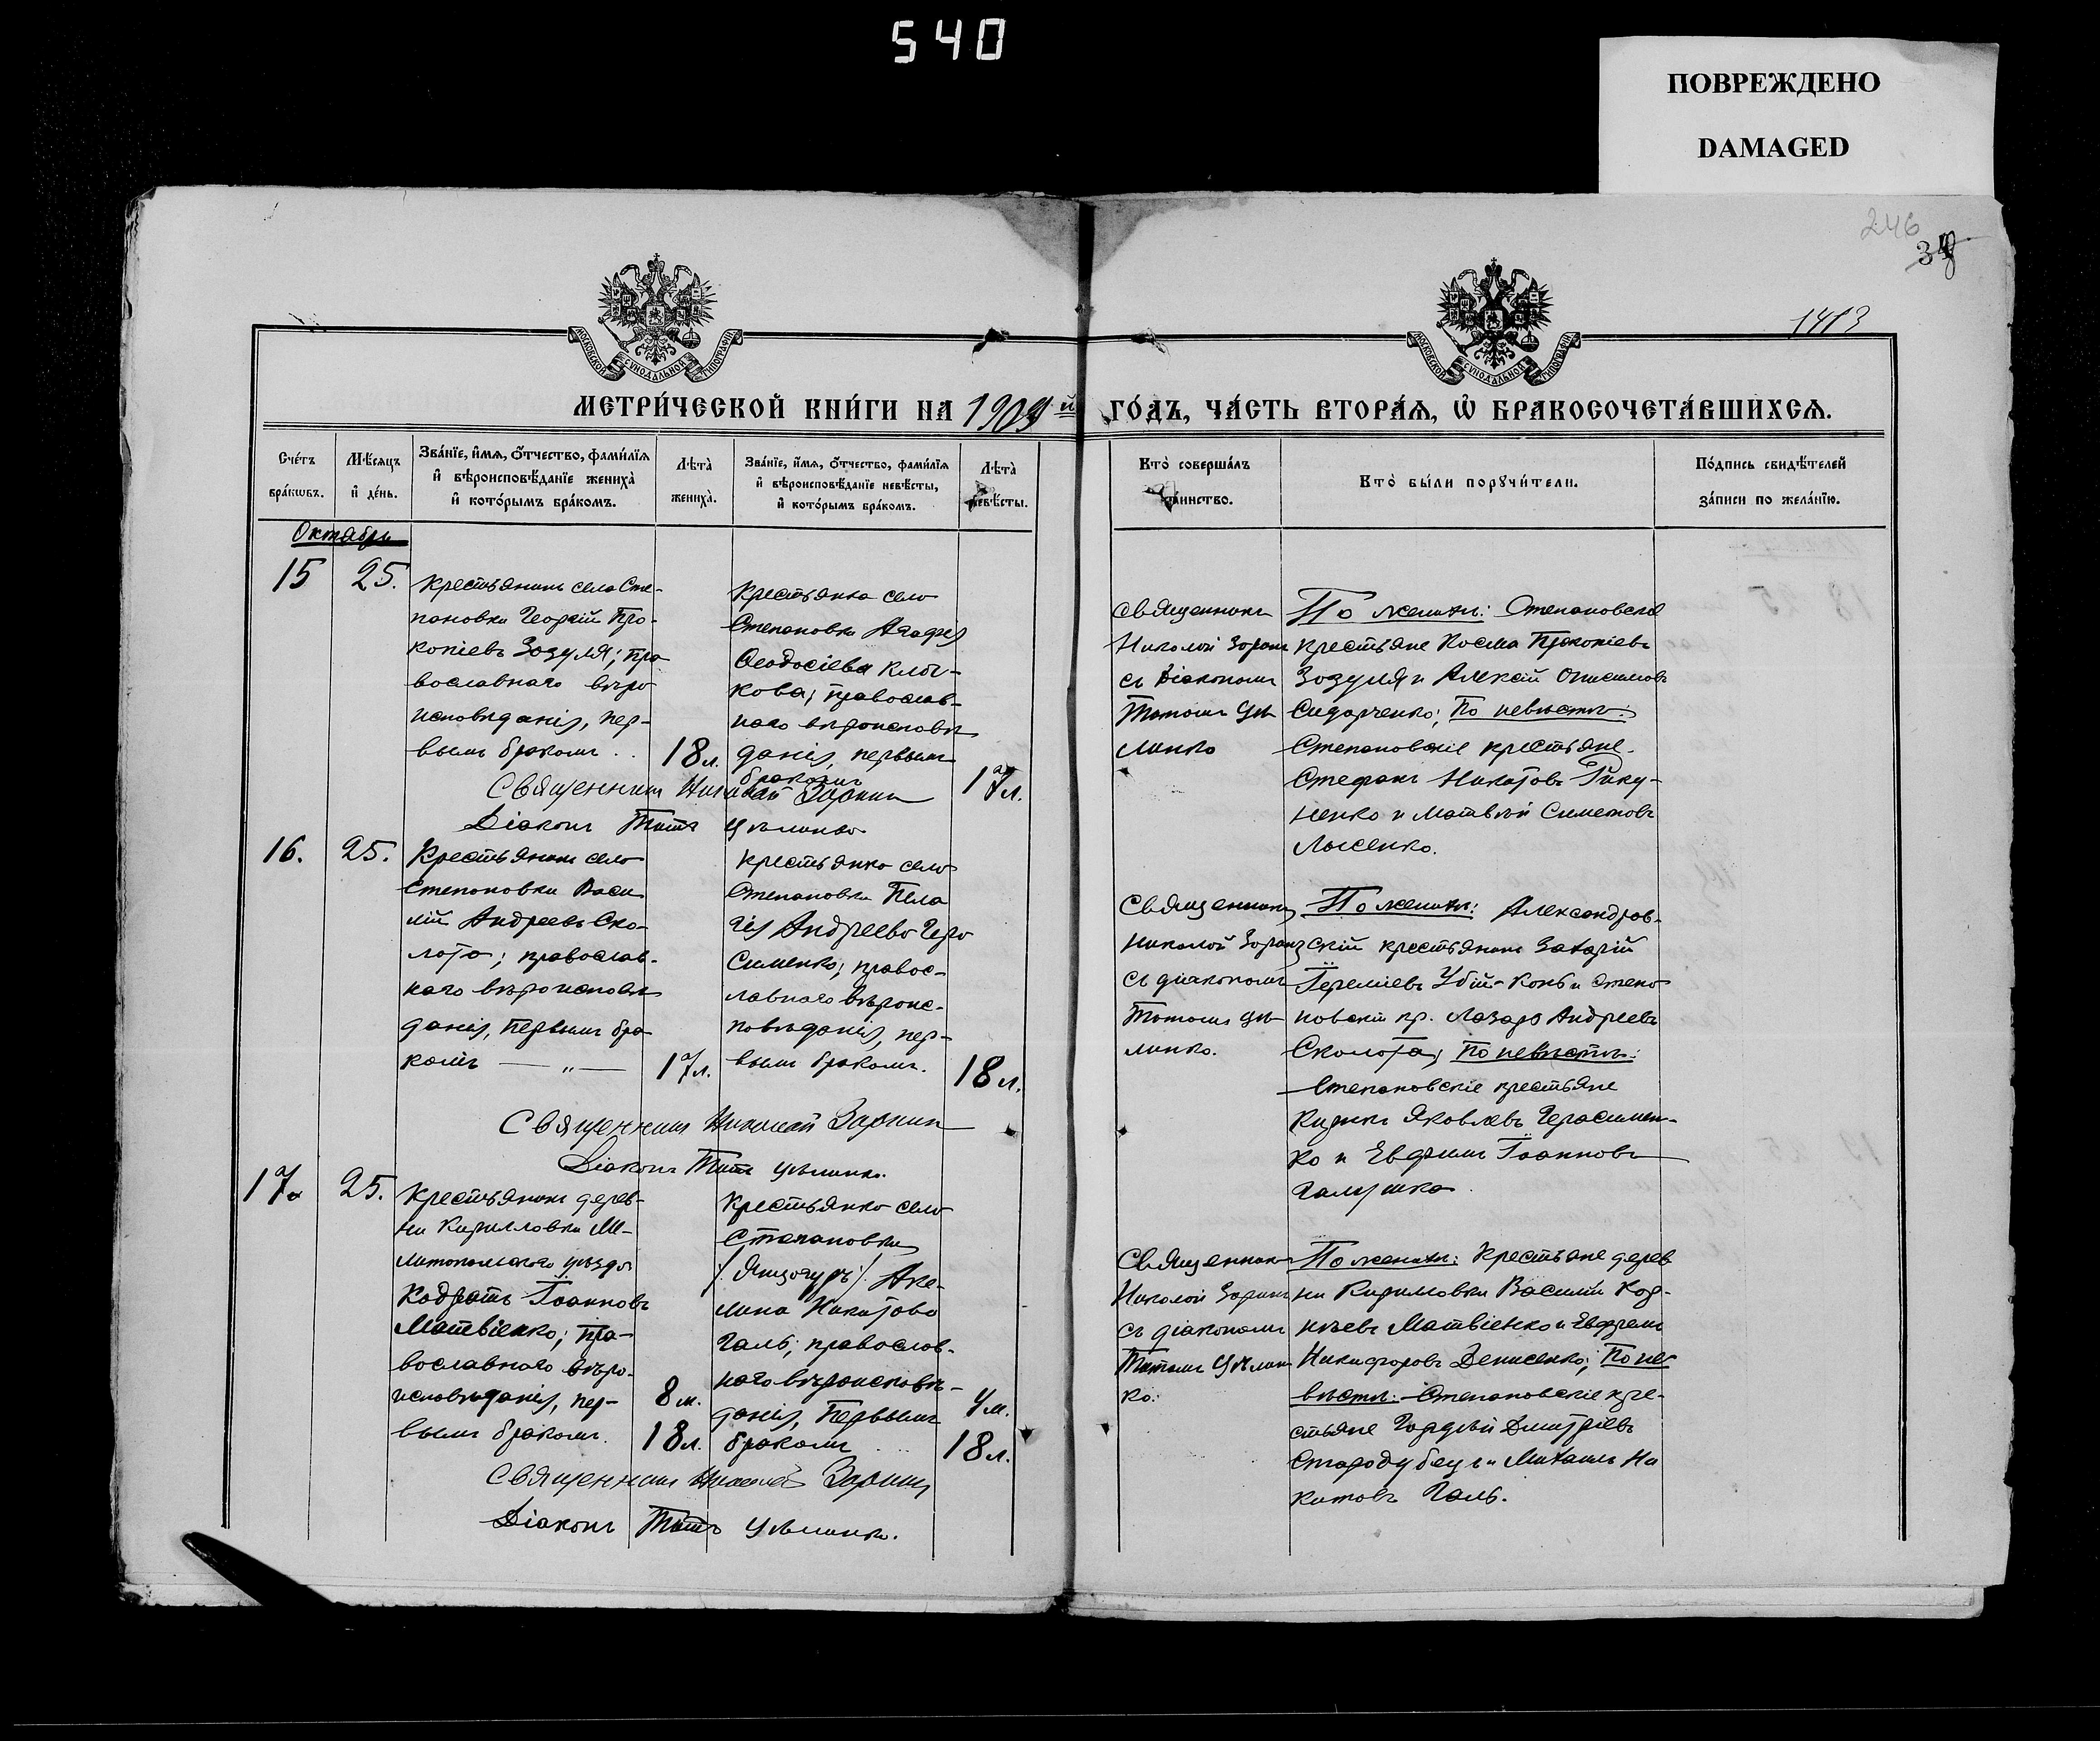 540
ПОВРЕЖДЕНО
DAMAGED
246
1413
МОСКОВСКОЙ СУНОДАЛЬНОЙ ТИПОГРАФІИ
МОСКОВСКОЙ СУНОДАЛЬНОЙ ТИПОГРАФІИ
МЕТРИ́ЧЕСКОЙ КНИ́ГИ НА 1909 й ГО́ДЪ, ЧА́СТЬ ВТОРА́Я, Ѡ҆ БРАКОСОЧЕТА́ВШИХСЯ.
Сче́тъ
бра́кѡвъ.
Мѣ́сяцъ
и҆ де́нь.
Зва́нїе, и҆́мя, ѻ҆́тчество, фами́лїя
и҆ вѣроисповѣ́данїе жениха̀
и҆ кото́рымъ бра́комъ.
Лѣта̀
жениха̀.
Зва́нїе, и҆́мя, ѻ҆́тчество, фами́лїя
и҆ вѣроисповѣ́данїе невѣ́сты,
и҆ кото́рымъ бра́комъ.
Лѣта̀
невѣ́сты.
Кто̀ соверша́лъ
та́инство.
Кто̀ бы́ли порꙋчи́тели.
По́дпись свидѣ́телей
за́писи по жела́нїю.
Октябрь
15
25.
Крестьянинъ села Сте-
пановки Георгій Про-
копіевъ Зозуля; пра
вославнаго вѣро
исповѣданія, пер-
вымъ бракомъ.
18 л.
Крестьянка села
Степановки Агафія
Ѳеодосіева Клоч-
кова; православ-
наго вѣроисповѣ
данія, первымъ
бракомъ
17 л.
Священникъ Николай Заринъ
Діаконъ Титъ
Священникъ
Николай Заринъ
съ Діакономъ
Титомъ
По женихѣ: Степановскіе
крестьяне Косма Прокопіевъ
Зозуля и Алексій Онисимовъ
Сидорченко; По невѣстѣ:
Степановскіе крестьяне
Стефанъ Никитовъ
ненко и Матвѣй Симеоновъ
Лысенко.
16.
25.
Крестьянинъ села
Степановки Васи
лій Андреевъ Ско-
лота; православ-
наго вѣроисповѣ
данія, первымъ бра
комъ — „ —
17 л.
Крестьянка села
Степановки Пела
гія Андреева Гера
сименко; правос-
лавнаго вѣроис-
повѣданія, пер-
вымъ бракомъ.
18 л.
Священникъ Николай Заринъ
Діаконъ Титъ
Священникъ
Николай Заринъ
съ діакономъ
Титомъ
По женихѣ: Александров-
скій крестьянинъ Захарій
Іереміевъ Убій-Конь и Степа
новскій кр. Лазарь Андреевъ
Сколота; По невѣстѣ:
Степановскіе крестьяне
Кирикъ Яковлевъ Герасимен-
ко и Евфимъ Іоанновъ
Галушка.
17.
25.
Крестьянинъ дерев-
ни Кирилловки Ме-
литопольскаго уѣзда
Кодратъ Іоанновъ
Матвіенко; пра-
вославнаго вѣро-
исповѣданія, пер-
вымъ бракомъ.
8 м.
18 л.
Крестьянка села
Степановки
Аке-
лина Никитова
Галь; православ-
наго вѣроисповѣ-
данія, первымъ
бракомъ
4 м.
18 л.
Священникъ Николай Заринъ
Діаконъ Титъ
Священникъ
Николай Заринъ
съ діакономъ
Титомъ
По женихѣ: Крестьяне дерев
ни Кирилловки Василій
Матвіенко и Ефремъ
Никифоровъ Денисенко; По не
вѣстѣ: Степановскіе кре-
стьяне Гордѣй Дмитріевъ
Стародубецъ и Михаилъ Ни
китовъ Галь.